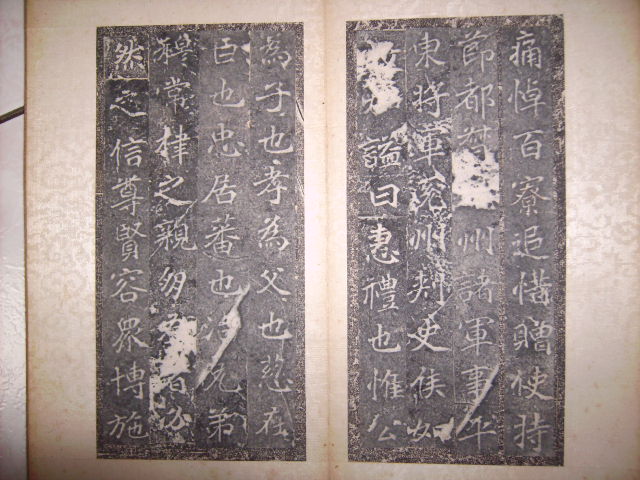 痛悼百寮追惜贈使持
節都督州諸軍事平
東將軍兖州刾史侯如
謚曰惠禮也惟公
為子也孝為父也慈在
臣也忠居蕃也治兄弟
穆常棣之親
然之信尊賢容眾博施